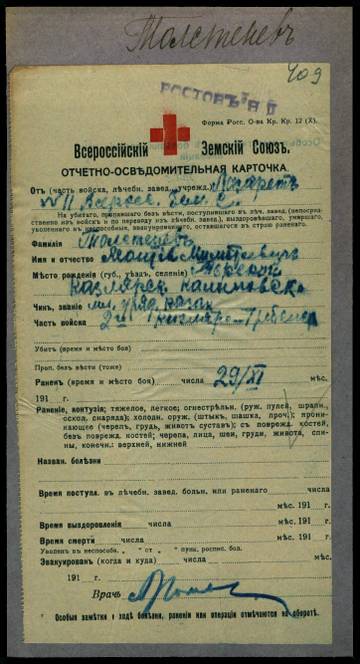 Толстеневъ
409
РОСТОВЪ Н/Д
Форма Росс. О-ва Кр. Кр. 12 (X).
Всероссійскій Земскій Союзъ.
ОТЧЕТНО-ОСВѢДОМИТЕЛЬНАЯ КАРТОЧКА.
Отъ (часть войска, лѣчебн. завед., учрежд.) Лазаретъ
На убитаго, пропавшаго безъ вѣсти, поступившаго въ лѣч. завед. (непосред-
ственно изъ войскъ и по переводу изъ лѣчебн. завед.), выздоровѣвшаго, умершаго,
уволеннаго къ неспособные, эвакуированнаго, оставшагося въ строю раненаго.
Фамилія Толстеневъ
Имя и отчество
Мѣсто рожденія (губ., уѣзд., селеніе) Терской
Чинъ, званіе
Часть войска 2й Кизляро-Гребенск
Убитъ (время и мѣсто боя)
Проп. безъ вѣсти (тоже)
Раненъ (время и мѣсто боя) числа 29/XI мѣс.
191 г.
Раненіе, контузія; тяжелое, легкое; огнестрѣльн. (руж. пулей, шрапн.,
оскол. снаряда); холодн. оруж. (штыкъ, шашка, проч.); прони-
кающее (черепъ, грудь, животъ суставъ); съ поврежд. костей,
безъ поврежд. костей; черепа, лица, шеи, груди, живота, спи-
ны, конечн.: верхней, нижней
Назван. болѣзни
Время поступл. въ лѣчебн. завед. больн. или раненаго числа
мѣс. 191 г.
Время выздоровленія числа мѣс. 191 г.
Время смерти числа мѣс. 191 г.
Уволенъ въ неспособн. „ " ст. „ " пунк. роспис. бол.
Эвакуированъ (когда и куда) числа мѣс.
191 г.
Врачъ
* Особыя замѣтки о ходѣ болѣзни, раненія или операціи отмѣчаются на оборотѣ.